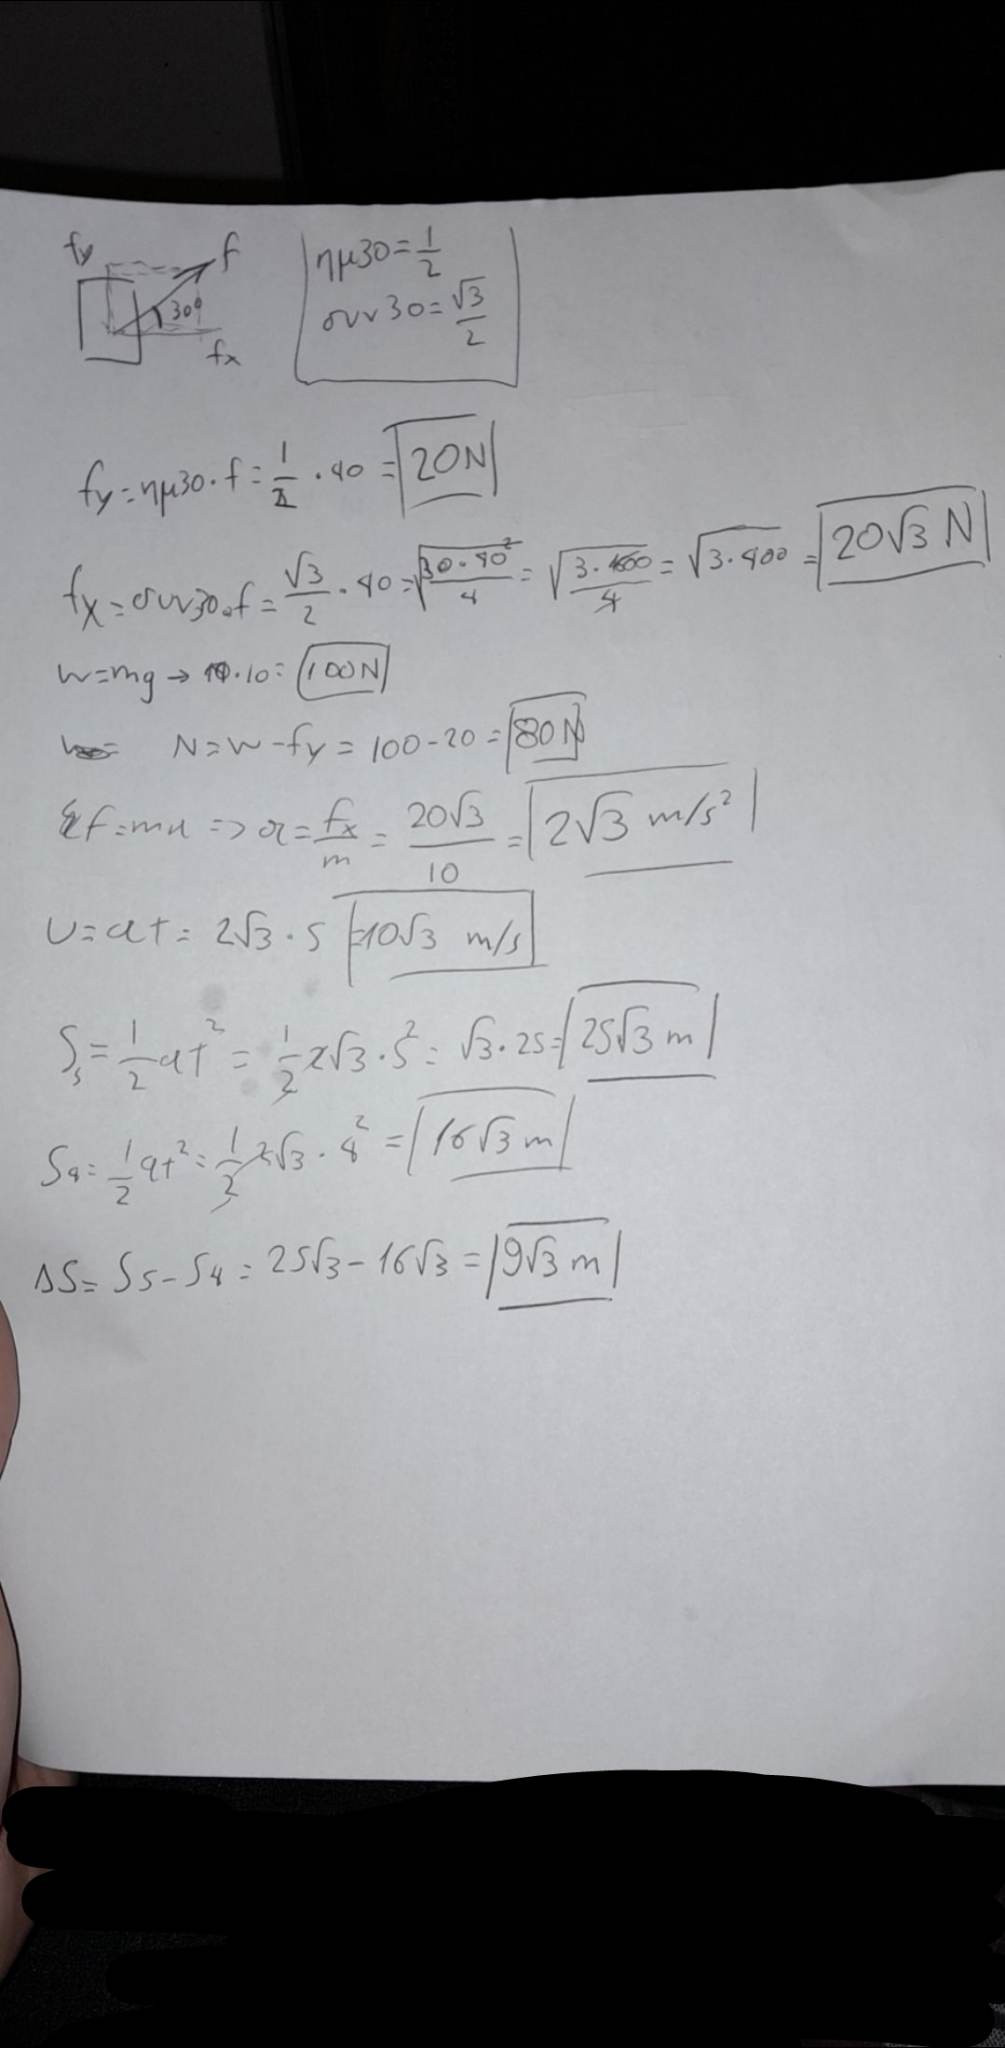 fy f
30°
fx
ημ30=1/2
συν30=√3/2
fy=ημ30·f=1/2·40=20N
fx=συν30·f=√3/2·40=√(30·40²/4)=√(3·1600/4)=√(3·400)=20√3 N
w=mg→10·10=100N
N=w-fy=100-20=80N
Σf=ma=>a=fx/m=20√3/10=2√3 m/s²
U=at=2√3·5=10√3 m/s
S₅=1/2at²=1/2 2√3·5²=√3·25=25√3 m
S₄=1/2at²=1/2 2√3·4²=16√3 m
ΔS=S₅-S₄=25√3-16√3=9√3 m